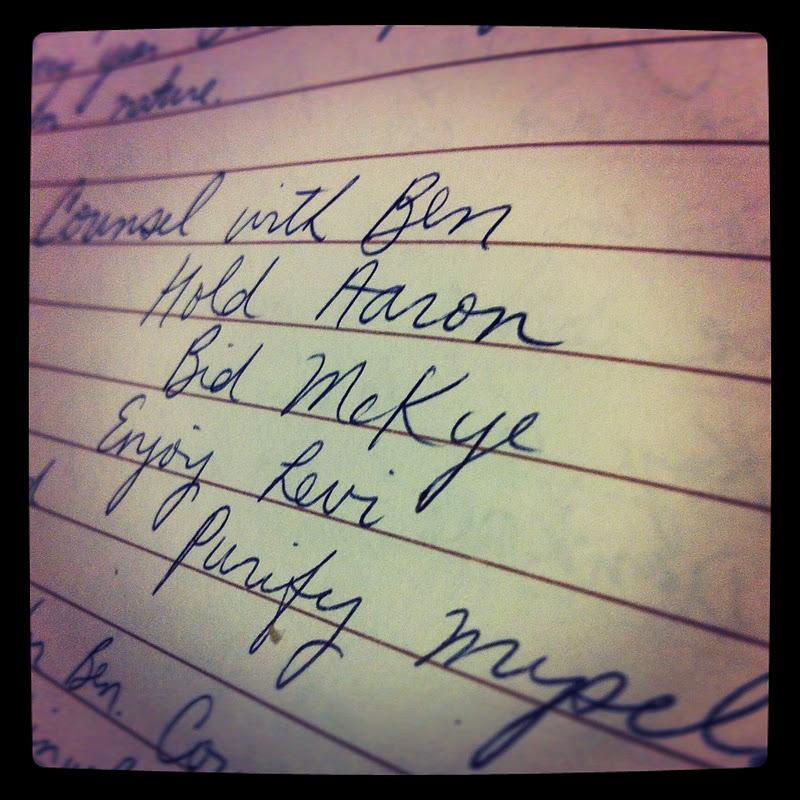 nature.
Counsel with Ben
Hold Aaron
Bid McKye
Enjoy Levi
Purify mysel
Ben. Co